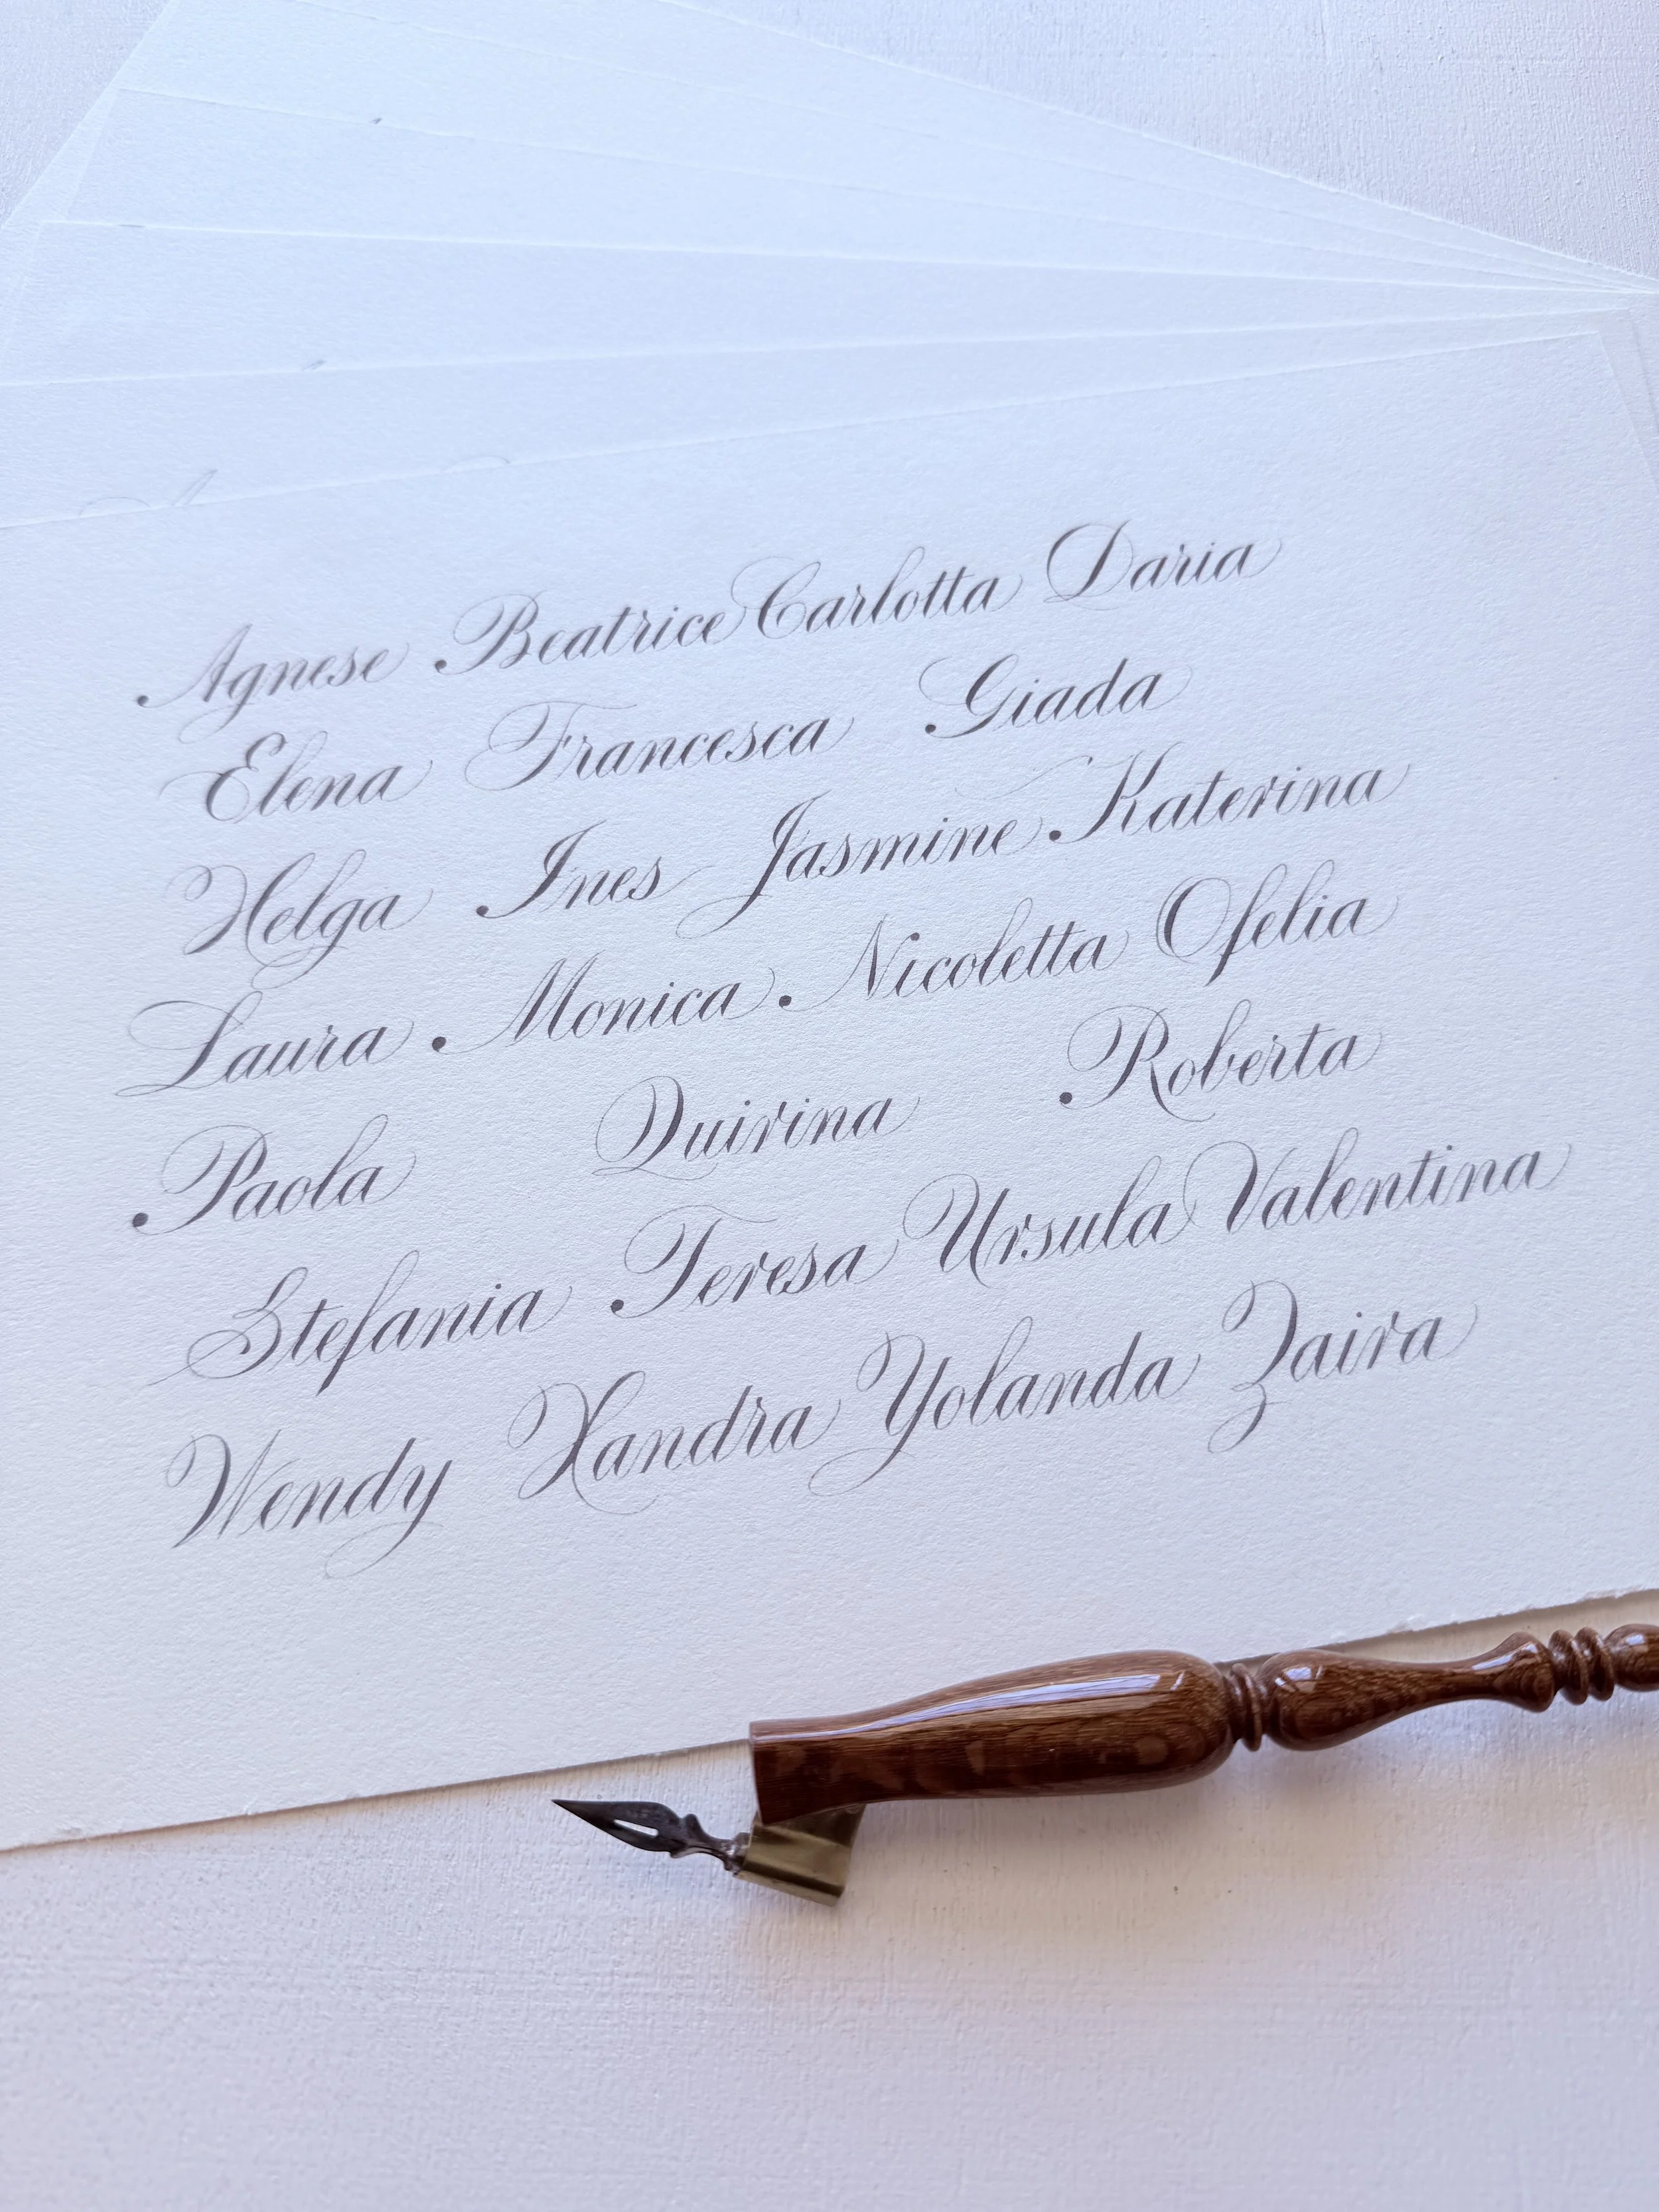 Agnese Beatrice Carlotta Daria
Elena Francesca Giada
Helga Ines Jasmine Katerina
Laura Monica Nicoletta Ofelia
Paola Quirina Roberta
Stefania Teresa Ursula Valentina
Wendy Xandra Yolanda Zaira